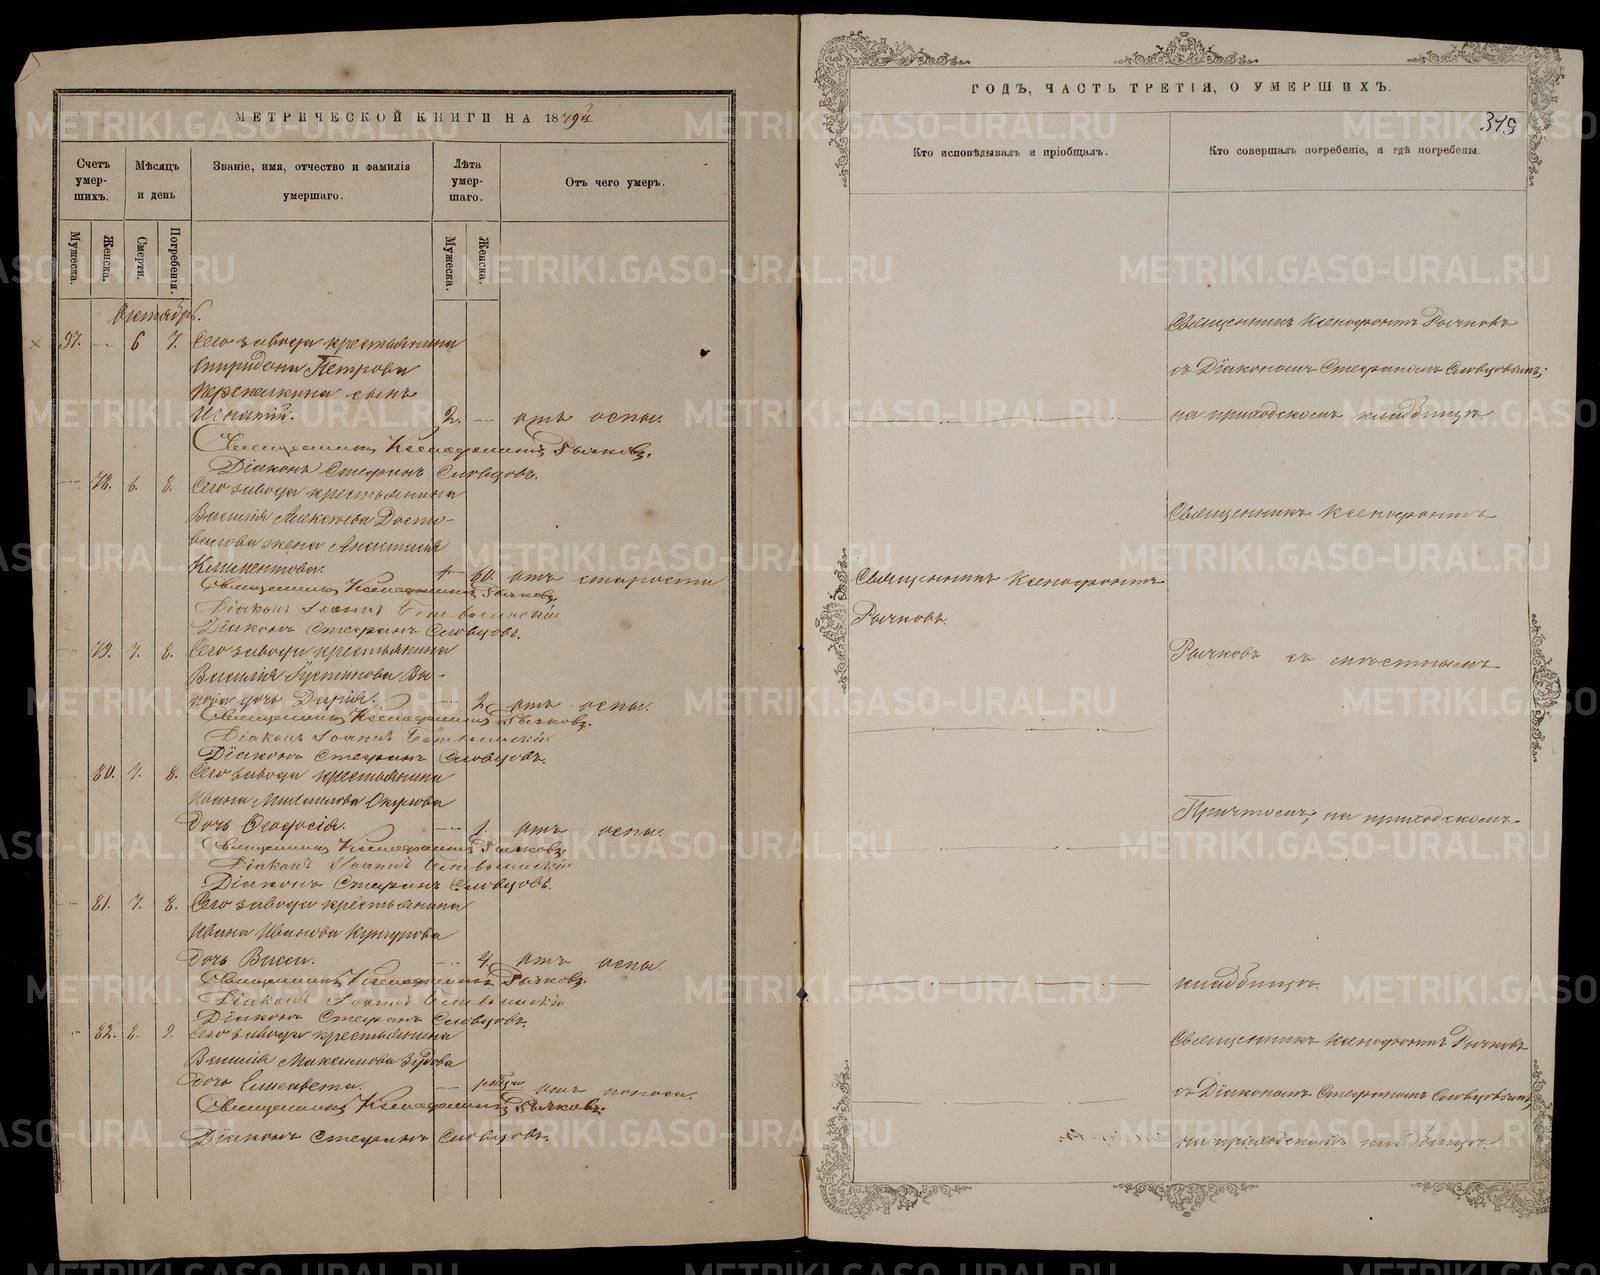 МЕТРИЧЕСКОЙ КНИГИ НА 18
Счетъ умер-шихъ.
Мѣсяцъ и день
Званіе, имя, отчество и фамилія умершаго.
Лѣта умер-шаго.
Отъ чего умеръ.
Мужеска.
Женска.
Смерти.
Погребенія.
Мужеска.
Женска.
Октябрь.
97. 6 7. Сего завода крестьянина
Спиридона Петрова
сынъ
Игнатій. 2. отъ оспы.
Священникъ Ксенофонтъ Рычковъ.
Діаконъ Стефанъ Словцовъ.
78. 6. 8. Сего завода крестьянина
Василія Алексѣева Досто-
валова жена Анастасія
Климентова. 60. отъ старости
Священникъ Ксенофонтъ Рычковъ.
Діаконъ Іоаннъ
Діаконъ Стефанъ Словцовъ.
79. 7. 8. Сего завода крестьянина
Василія Устинова
дочь Дарія. 2. отъ оспы.
Священникъ Ксенофонтъ Рычковъ.
Діаконъ Іоаннъ
Діаконъ Стефанъ Словцовъ.
80. 7. 8. Сего завода крестьянина
Ивана Михаилова
дочь Ѳеодосія. 1. отъ оспы.
Священникъ Ксенофонтъ Рычковъ.
Діаконъ Іоаннъ
Діаконъ Стефанъ Словцовъ.
81. 7. 8. Сего завода крестьянина
Ивана Иванова Кунгурова
дочь Васса. 4. отъ оспы.
Священникъ Ксенофонтъ Рычковъ.
Діаконъ Іоаннъ
Діаконъ Стефанъ Словцовъ.
82. 8. 9. Сего завода крестьянина
Василія Максимова
дочь Елисавета. отъ поноса.
Священникъ Ксенофонтъ Рычковъ.
Діаконъ Стефанъ Словцовъ.
ГОДЪ, ЧАСТЬ ТРЕТІЯ, О УМЕРШИХЪ.
Кто исповѣдывалъ и пріобщалъ.
Кто совершалъ погребеніе, и гдѣ погребены.
Священникъ Ксенофонтъ Рычковъ
съ Діакономъ Стефаномъ Словцовымъ,
на приходскомъ кладбищѣ
Священникъ Ксенофонтъ
Священникъ Ксенофонтъ
Рычковъ.
Рычковъ съ мѣстнымъ
Причтомъ, на приходскомъ
кладбищѣ.
Священникъ Ксенофонтъ Рычковъ
съ Діакономъ Стефаномъ Словцовымъ,
на приходскомъ кладбищѣ.
METRIKI.GASO-URAL.RU